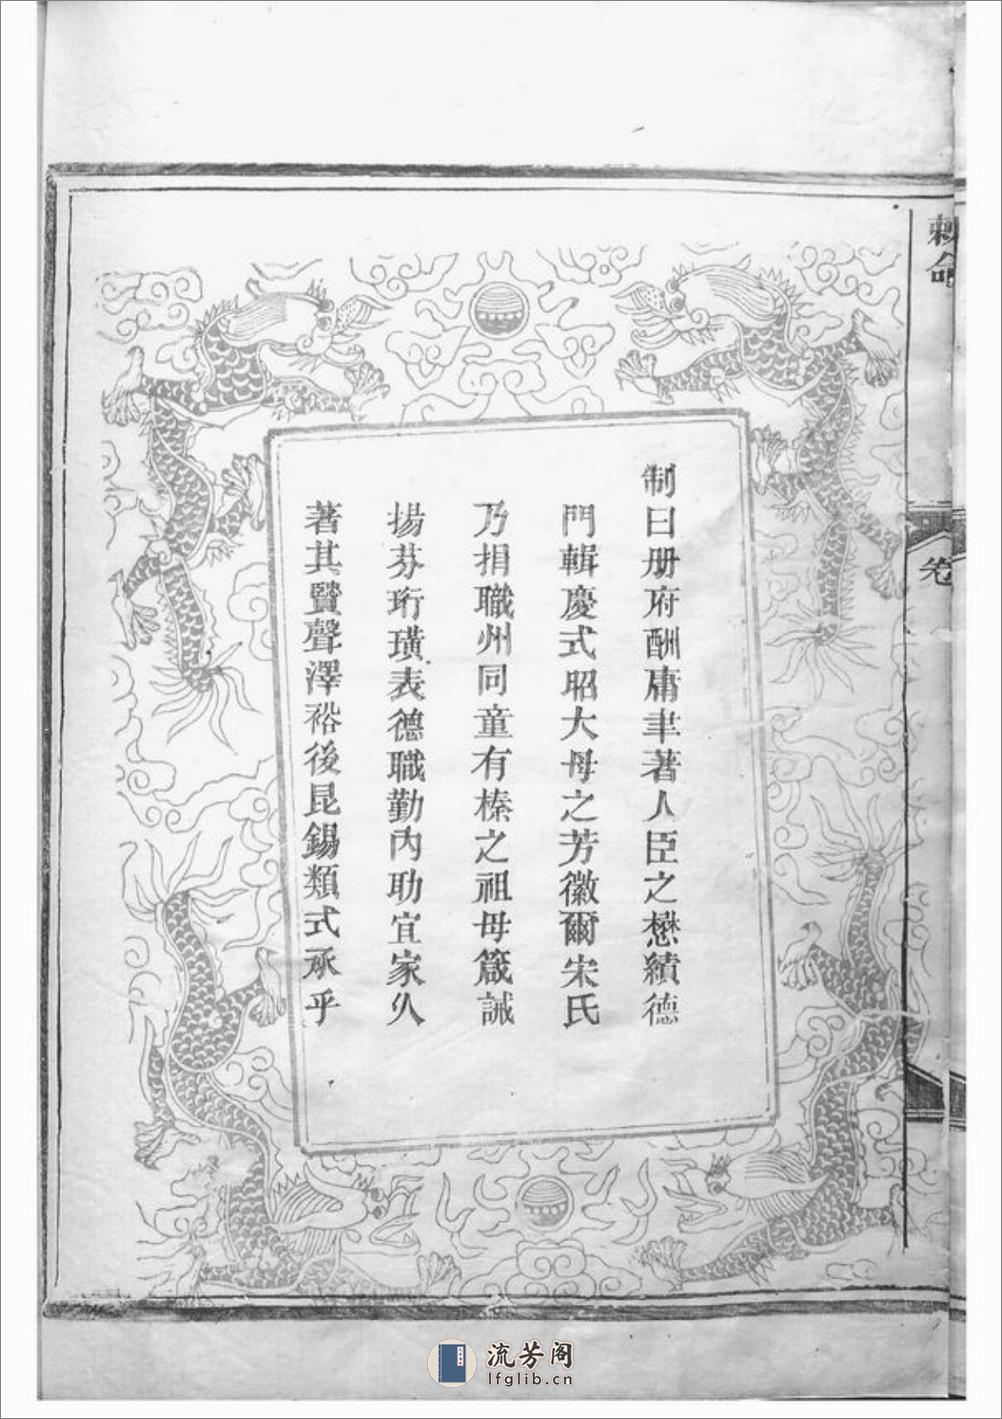 敕命
卷
制曰册府酬庸聿著人臣之懋績德
門輯慶式昭大母之芳徽爾宋氏
乃捐職州同童有榛之祖母箴誡
揚芬珩璜表德職勤內助宜家久
著其賢聲澤裕後昆錫類式承乎
流芳阁
lfglib.cn